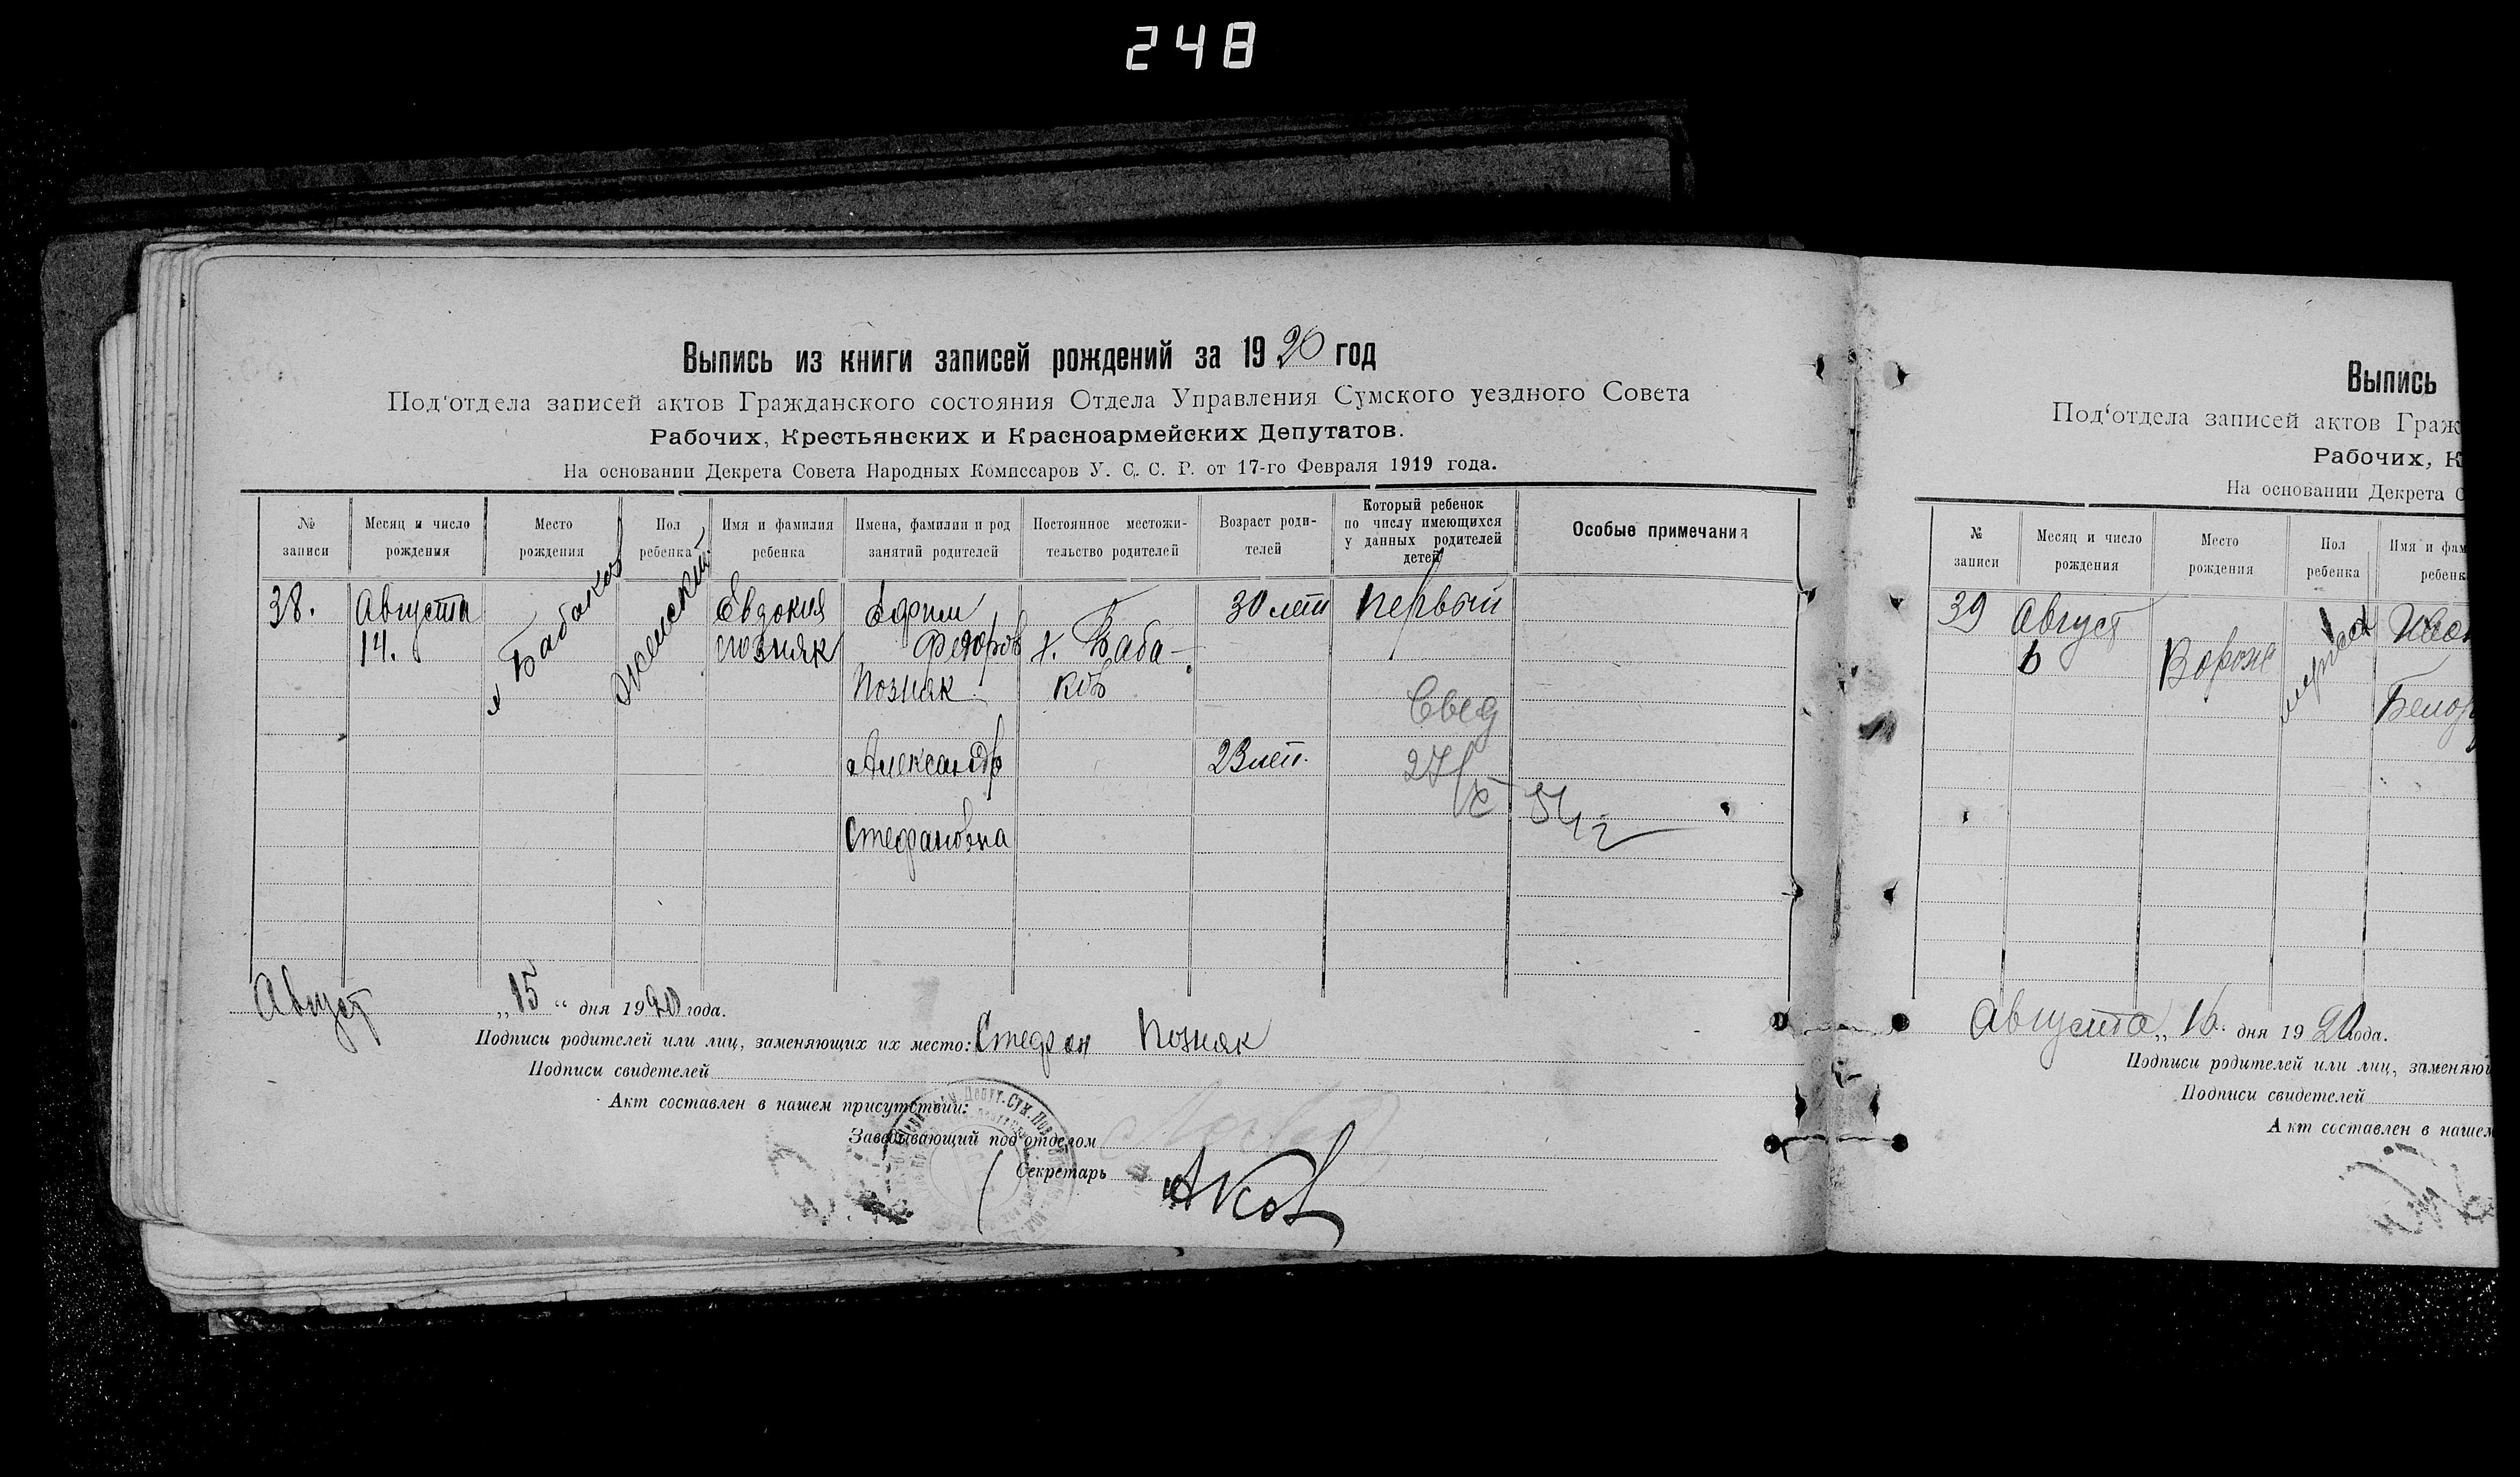 248
Выпись из книги записей рождений за 1920 год
Под‘отдела записей актов Гражданского состояния Отдела Управления Сумского уездного Совета
Рабочих, Крестьянских и Красноармейских Депутатов.
На основании Декрета Совета Народных Комиссаров У. С. С. Р. от 17-го Февраля 1919 года.
№ записи
Месяц и число рождения
Место рождения
Пол ребенка
Имя и фамилия ребенка
Имена, фамилии и род занятий родителей
Постоянное местожительство родителей
Возраст родителей
Который ребенок по числу имеющихся у данных родителей детей
Особые примечания
38.
Августа
14.
х Бабаков
женский
Евдокия
Позняк
Ефим
Федоров
Позняк
Александр
Стефановна
х. Баба-
ков
30 лет
23 лет.
первый
Свед
27/X 54 г
Август „15“ дня 1920 года.
Подписи родителей или лиц, заменяющих их место: Стефан Позняк
Подписи свидетелей
Акт составлен в нашем присутствии:
Заведывающий под‘отделом
Секретарь
Выпись
Под‘отдела записей актов Граж
Рабочих, К
На основании Декрета С
№ записи
Месяц и число рождения
Место рождения
Пол ребенка
Имя и фам
ребенк
39
Август
6
Августа „16“ дня 1920 года.
Подписи родителей или лиц, заменяю
Подписи свидетелей
Акт составлен в нашем